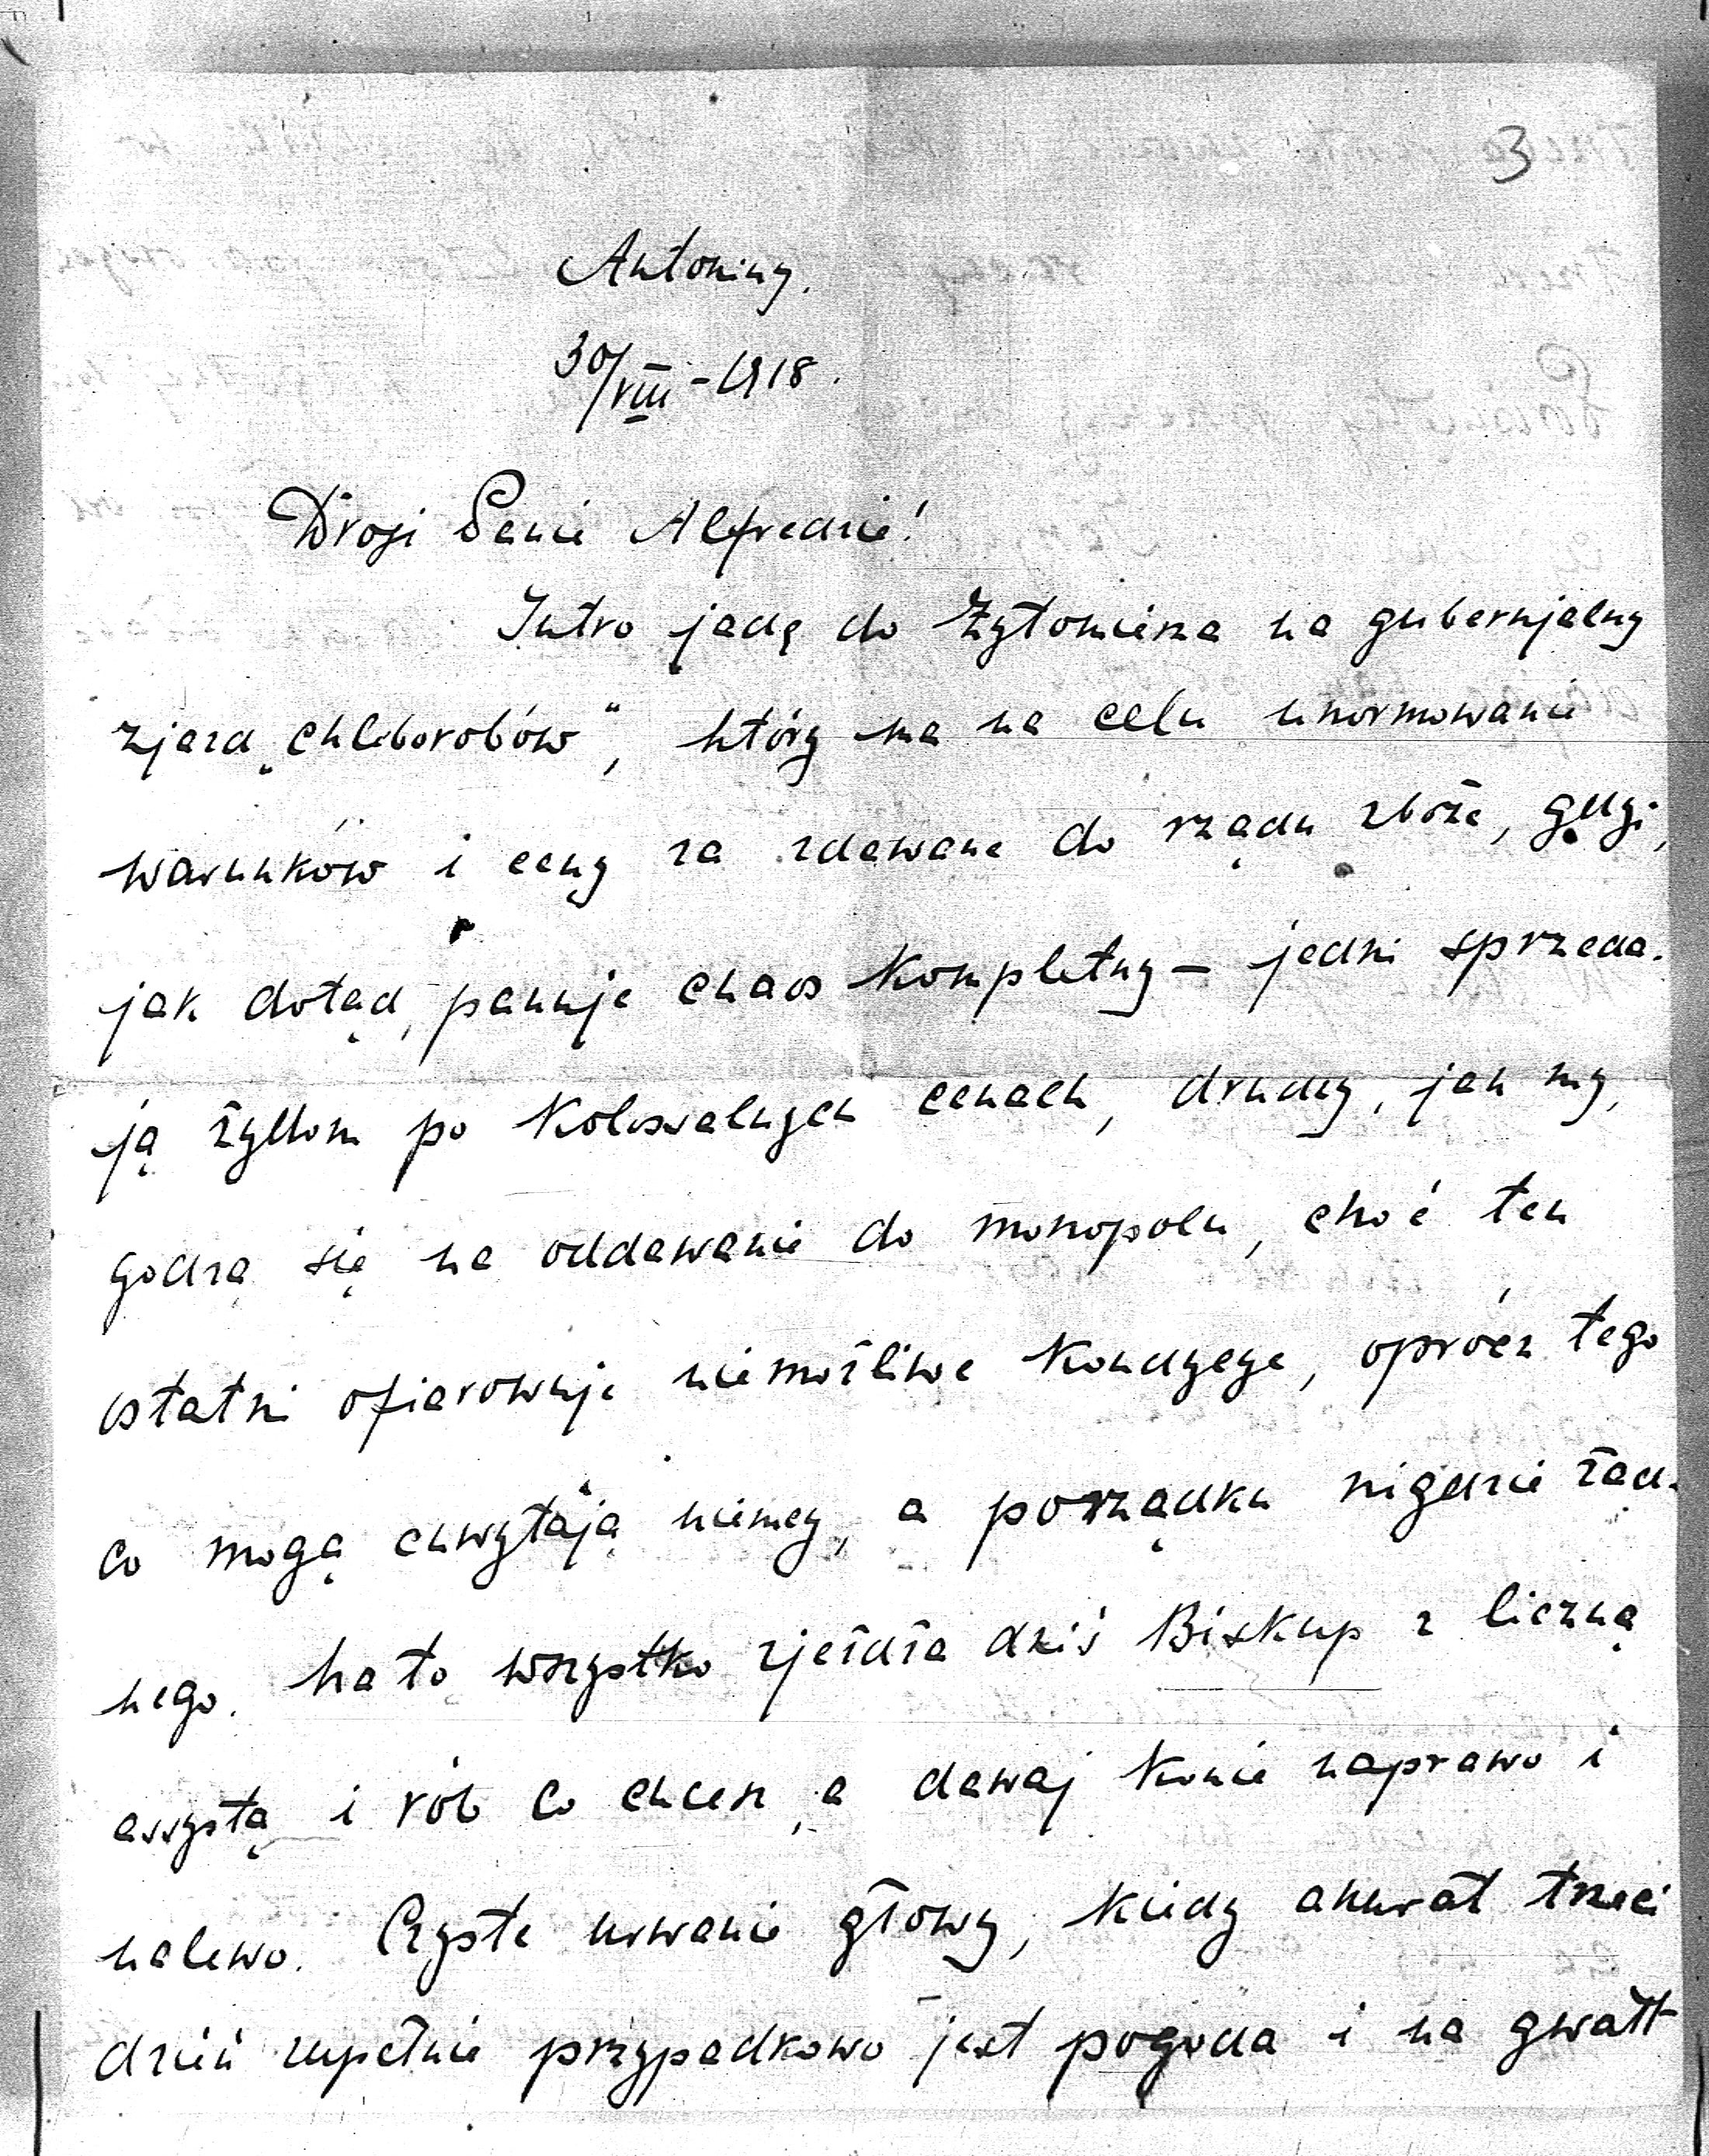 3
Antoniny.
30/VIII - 1918.
Drogi Panie Alfredzie!
Jutro jadę do Żytomierza na gubernjalny
zjazd „chleborobów", który ma na celu unormowanie
warunków i ceny za zdawane do rządu zboże, gdyż,
jak dotąd, panuje chaos kompletny – jedni sprzeda-
ją żydom po kolosalnych cenach, drudzy, jak my,
godzą się na oddawanie do monopolu, choć ten
ostatni ofiarowuje niemożliwe kondycye, oprócz tego
co mogą chwytają niemcy, a porządku nigdzie żad-
nego. Na to wszystko zjeżdża dziś Biskup z liczną
assystą i rób co chcesz, a dawaj konie naprawo i
nalewo. Czyste urwanie głowy, kiedy akurat trzeci
dzień zupełnie przypadkowo jest pogoda i na gwałt